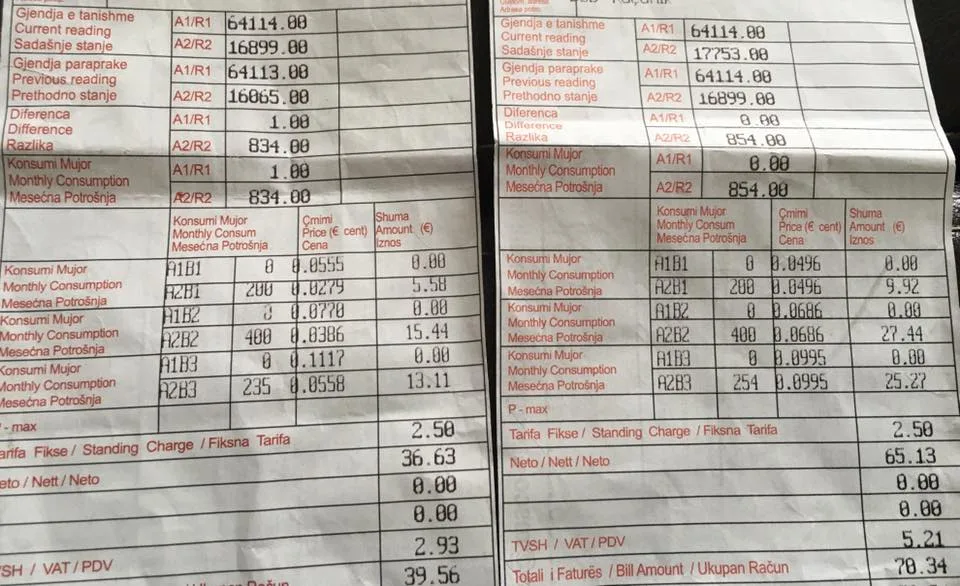 Gjendja e tanishme
Current reading
Sadašnje stanje
A1/R1 64114.00
A2/R2 16899.00
Gjendja paraprake
Previous reading
Prethodno stanje
A1/R1 64113.00
A2/R2 16065.00
Diferenca
Difference
Razlika
A1/R1 1.00
A2/R2 834.00
Konsumi Mujor
Monthly Consumption
Mesečna Potrošnja
A1/R1 1.00
A2/R2 834.00
Konsumi Mujor
Monthly Consum
Mesečna Potrošnja
Çmimi
Price (€ cent)
Cena
Shuma
Amount (€)
Iznos
Konsumi Mujor
Monthly Consumption
Mesečna Potrošnja
A1B1 0 0.0555 0.00
A2B1 200 0.0279 5.58
Konsumi Mujor
Monthly Consumption
Mesečna Potrošnja
A1B2 0 0.0770 0.00
A2B2 400 0.0386 15.44
Konsumi Mujor
Monthly Consumption
Mesečna Potrošnja
A1B3 0 0.1117 0.00
A2B3 235 0.0558 13.11
P - max
arifa Fikse / Standing Charge / Fiksna Tarifa 2.50
eto / Nett / Neto 36.63
0.00
0.00
VSH / VAT / PDV 2.93
39.56
Gjendja e tanishme
Current reading
Sadašnje stanje
A1/R1 64114.00
A2/R2 17753.00
Gjendja paraprake
Previous reading
Prethodno stanje
A1/R1 64114.00
A2/R2 16899.00
Diferenca
Difference
Razlika
A1/R1 0.00
A2/R2 854.00
Konsumi Mujor
Monthly Consumption
Mesečna Potrošnja
A1/R1 0.00
A2/R2 854.00
Konsumi Mujor
Monthly Consum
Mesečna Potrošnja
Çmimi
Price (€ cent)
Cena
Shuma
Amount (€)
Iznos
Konsumi Mujor
Monthly Consumption
Mesečna Potrošnja
A1B1 0 0.0496 0.00
A2B1 200 0.0496 9.92
Konsumi Mujor
Monthly Consumption
Mesečna Potrošnja
A1B2 0 0.0686 0.00
A2B2 400 0.0686 27.44
Konsumi Mujor
Monthly Consumption
Mesečna Potrošnja
A1B3 0 0.0995 0.00
A2B3 254 0.0995 25.27
P - max
Tarifa Fikse / Standing Charge / Fiksna Tarifa 2.50
Neto / Nett / Neto 65.13
0.00
0.00
TVSH / VAT / PDV 5.21
Totali i Faturës / Bill Amount / Ukupan Račun 70.34